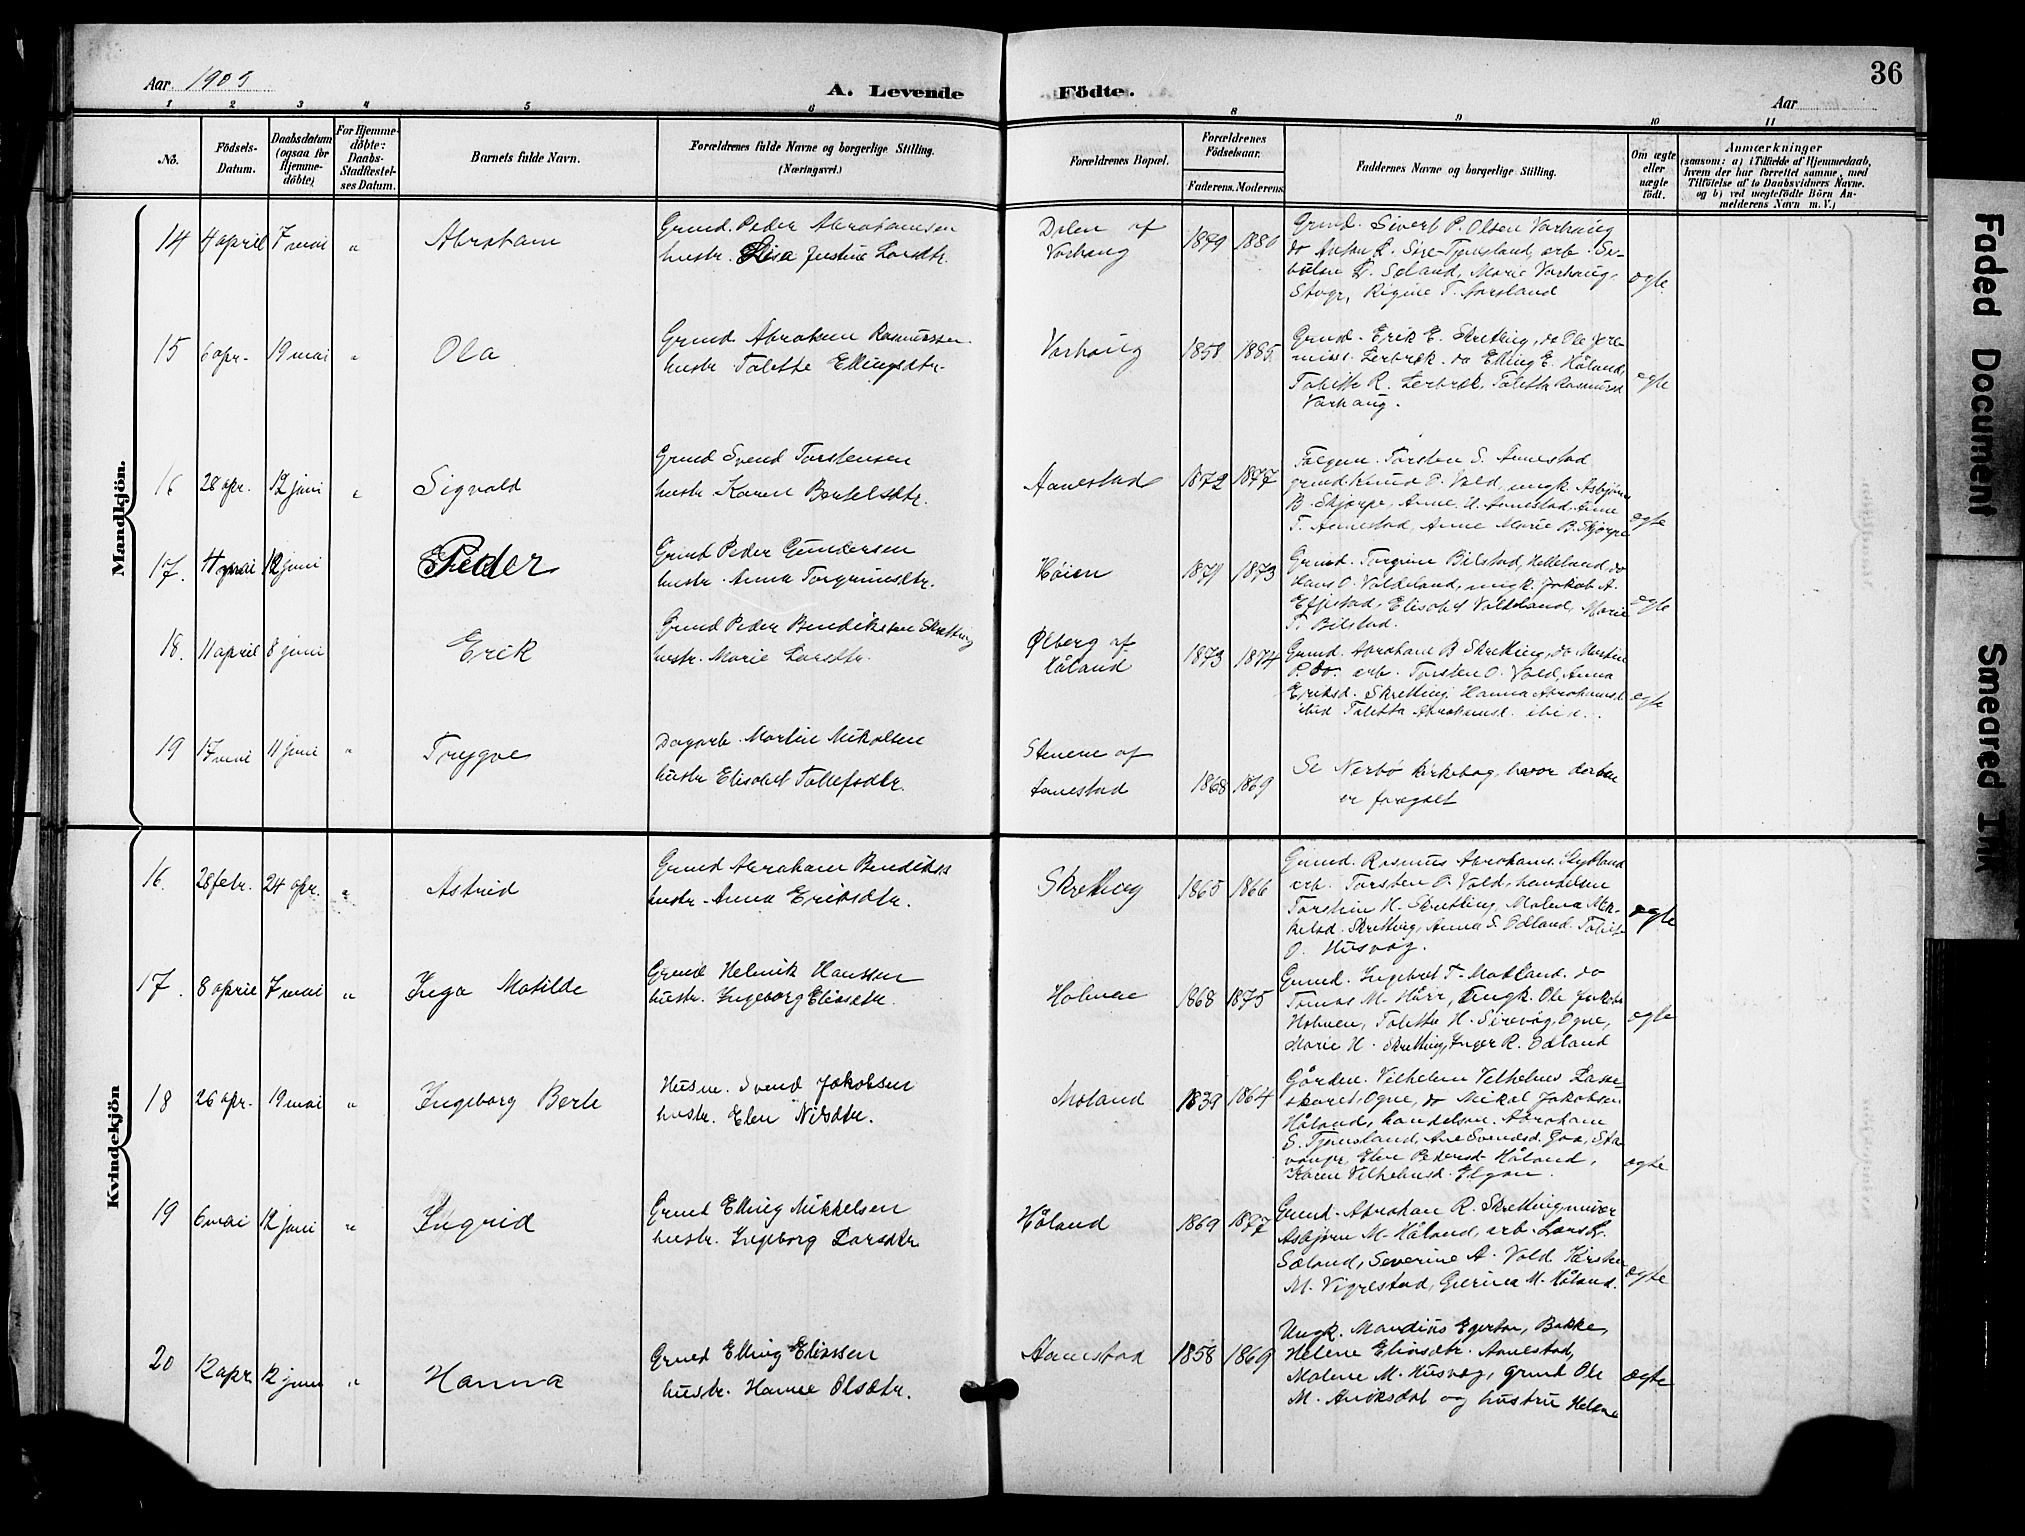 Aar 1909
A. Levende
Födte.
36
Aar
1 2 3 4 5 6 8 9 10 11
No.
Födsels-Datum.
Daabsdatum (ogsaa for Hjemme-döbte)
For Hjemme-döbte: Daabs-Stadfæstel-ses Datum.
Barnets fulde Navn.
Forældrenes fulde Navne og borgerlige Stilling. (Næringsvei.)
Forældrenes Bopæl.
Forældrenes Födselsaar.
Faderens. Moderens.
Faddernes Navne og borgerlige Stilling.
Om ægte eller uægte födt.
Anmærkninger
(saasom: a) i Tilfælde af Hjemmedaab,
hvem der har forrettet samme, med
Tilföielse af to Daabsvidners Navne.
og b) ved uægtefödte Börn An-
melderens Navn m. V.)
Mandkjön.
14 4 april 7 mai " Abraham
Grund. Peder Abrahamsen
hustr. Lisa Justine Larsdtr.
Dalen af
Varhaug
1879 1880
Grund. Sivert P. Olsen Varhaug
do Anton L. Sire-Tjemsland, arb.
L. Søland, Marie Varhaug,
Stvgr, Regine T. Aarsland
ægte
15 6 apr. 19 mai " Ola
Grund Abraham Rasmussen
hustr. Tolette Ellingsdtr.
Varhaug
1858 1885
Grund. Erik E. Skretting, do Ole Jere-
miass. Lerbrek. do Elling E. Håland,
R. Lerbrek, Toletta Rasmusd
Varhaug.
ægte
16 28 apr. 12 juni " Sigvald
Grund Svend Torstensen
hustr. Karen Bertelsdtr.
Aanestad
1872 1877
Torsten S. Aanestad
grund. Knud O. Vold, ungk. Asbjørn
B. Skjorpe, Anne H. Aanestad, Anne
T. Aanestad, Anne Marie B. Skjorpe
ægte
17. 4 mai 12 juni Peder
Grund Peder Gundersen
hustr. Anna Torgrimsdtr.
Høien
1871 1873
Grund. Torgrim Bilstad, Helleland, do
Hans O. Valdeland, ungk. Jakob A.
Efjestad, Elisabet Valdeland, Marie
T. Bilstad.
ægte
18. 11 april 8 juni Erik
Grund Peder Bendiksen Skretting
hustr. Marie Larsdtr.
Ølberg af
Håland
1873 1874
Grund. Abraham B Skretting, do Martin
P. do. arb. Torsten O. Vold, Anna
Eriksd. Skretting, Hanna Abrahamsd.
ibid Toletta Abrahamsd. ibid.
ægte
19 17 mai 11 juni " Trygve
Dagarb. Martin Mikalsen
hustr. Elisabet Tollefsdtr.
Stenene af
Aanestad
1868 1869
Se Nerbø kirkebog, hvor daaben
er foregået
Kvindekjön
16. 28 febr. 24 apr. " Astrid
Grund Abraham Bendikss
hustr. Anna Eriksdtr.
Skretting
1865 1866
Grund. Rasmus Abrahams.
arb. Torsten O. Vold, handelsm
Torstein H. Skretting, Malena Mik-
kelsd. Skretting, Anna S. Ødland.
O. Husvæg.
ægte
17. 8 april 7 mai " Inga Matilde
Grund Helmik Hanssen
hustr. Ingeborg Eliasdtr.
Holmane
1868 1875
Grund. Ingebret T. Motland. do
Tomas M. Hårr, ungk. Ole Jakobs
Holmen, Toletta H. Sirevåg, Ogne,
Marie H. Skretting, Inger R. Ødland
ægte
18 26 apr. 19 mai " Ingeborg Berte
Husm. Svend Jakobsen
hustr. Elen Nilsdtr.
Moland
1839 1864
Gårdm. Vilhelm Vilhelms
Ogne, do Mikal Jakobsen
Håland, handelsm. Abraham
S. Tjemsland, Ane Svendsd. Goa, Sta-
vanger, Elen Pedersd. Håland,
Karen Vilhelmsd. Elgan.
ægte
19 6 mai 12 juni " Ingrid
Grund Elling Mikkelsen
hustr. Ingeborg Larsdtr.
Håland
1869 1877
Grund. Abraham R. Skretting, murer
Asbjørn M. Håland, arb. Lars L.
Sæland, Severine A. Vold,
M. Vigrestad, Gurina M. Håland.
ægte
20 12 apr. 12 juni " Hanna
Grund Elling Eliassen
hustr. Hanne Olsdtr.
Aanestad
1858 1869
Ungk. Mandius Bakke,
Helene Eliasdtr. Aanestad,
Malene M. Husvæg, grund Ole
M. Aniksdal og hustru Helene
ægte
Faded Document
Smeared Ink